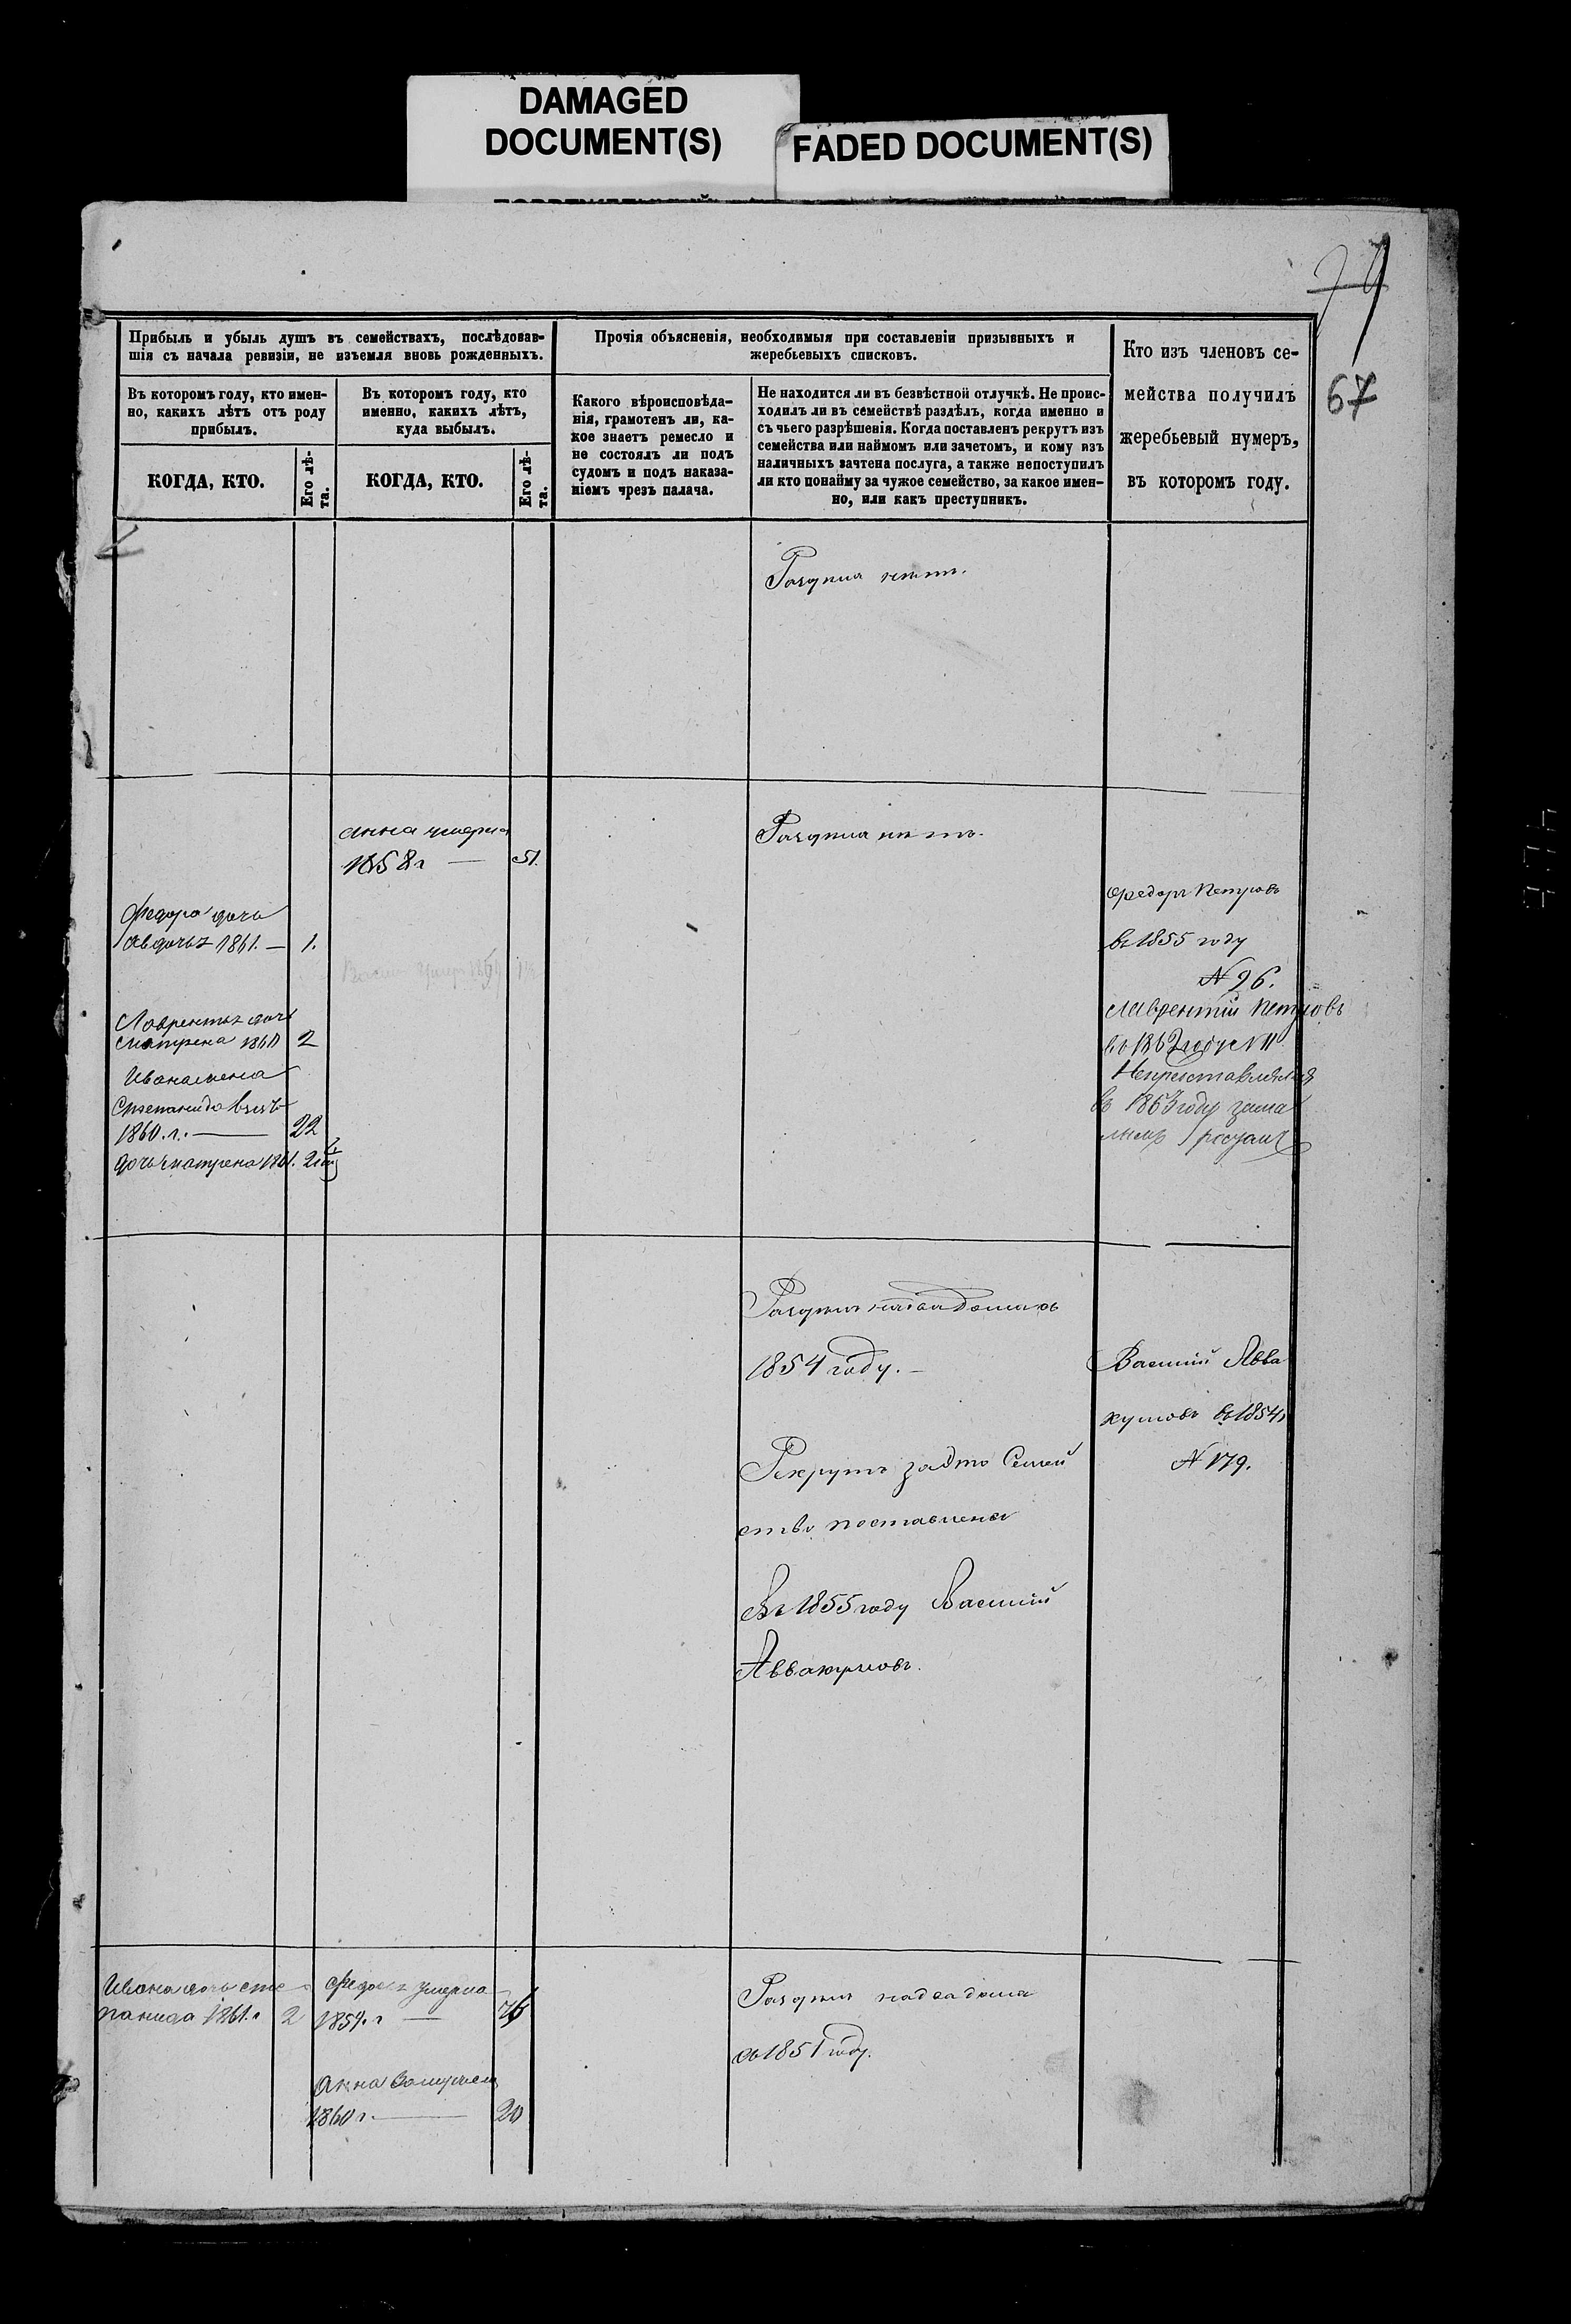 DAMAGED
DOCUMENT(S)
FADED DOCUMENT(S)
67
Прибыль и убыль душъ въ семействахъ, послѣдовав-
шія съ начала ревизіи, не изъемля вновь рожденныхъ.
Въ которомъ году, кто имен-
но, какихъ лѣтъ отъ роду
прибылъ.
КОГДА, КТО.
Его лѣ-
та.
Въ которомъ году, кто
именно, какихъ лѣтъ,
куда выбылъ.
КОГДА, КТО.
Его лѣ-
та.
Прочія объясненія, необходимыя при составленіи призывныхъ и
жеребьевыхъ списковъ.
Какого вѣроисповѣда-
нія, грамотенъ ли, ка-
кое знаетъ ремесло и
не состоялъ ли подъ
судомъ и подъ наказа-
ніемъ чрезъ палача.
Не находится ли въ безвѣстной отлучкѣ. Не проис-
ходилъ ли въ семействѣ раздѣлъ, когда именно и
съ чьего разрѣшенія. Когда поставленъ рекрутъ изъ
семейства или наймомъ или зачетомъ, и кому изъ
наличныхъ зачтена послуга, а также непоступилъ
ли кто понайму за чужое семейство, за какое имен-
но, или какъ преступникъ.
Кто изъ членовъ се-
мейства получилъ
жеребьевый нумеръ,
въ которомъ году.
Раздѣла нѣтъ.
Анна умерла
1858 г — 51.
Раздѣла нѣтъ.
Федора дочь
Авдотья 1861. — 1.
Лаврентья дочь
Матрена 1861 2
Ивана жена
Степанида взята
1860. г. — 22
дочь Матрена 1861.
Федоръ Петровъ
въ 1855 году
№ 96.
Лаврентій Петровъ
въ 1862 году № 11
въ 1863 году
1854 году. —
Рекрутъ за это Семей
ство поставленъ
Въ 1855 году Василій
Аввакумовъ.
Василій Авва
кумовъ въ 1854 г
№ 179.
Ивана дочь Сте
панида 1861. г 2
Федосья умерла
1859. г — 76
Анна Замужем
1860 г. — 20
Раздѣлъ
въ 1851 году.